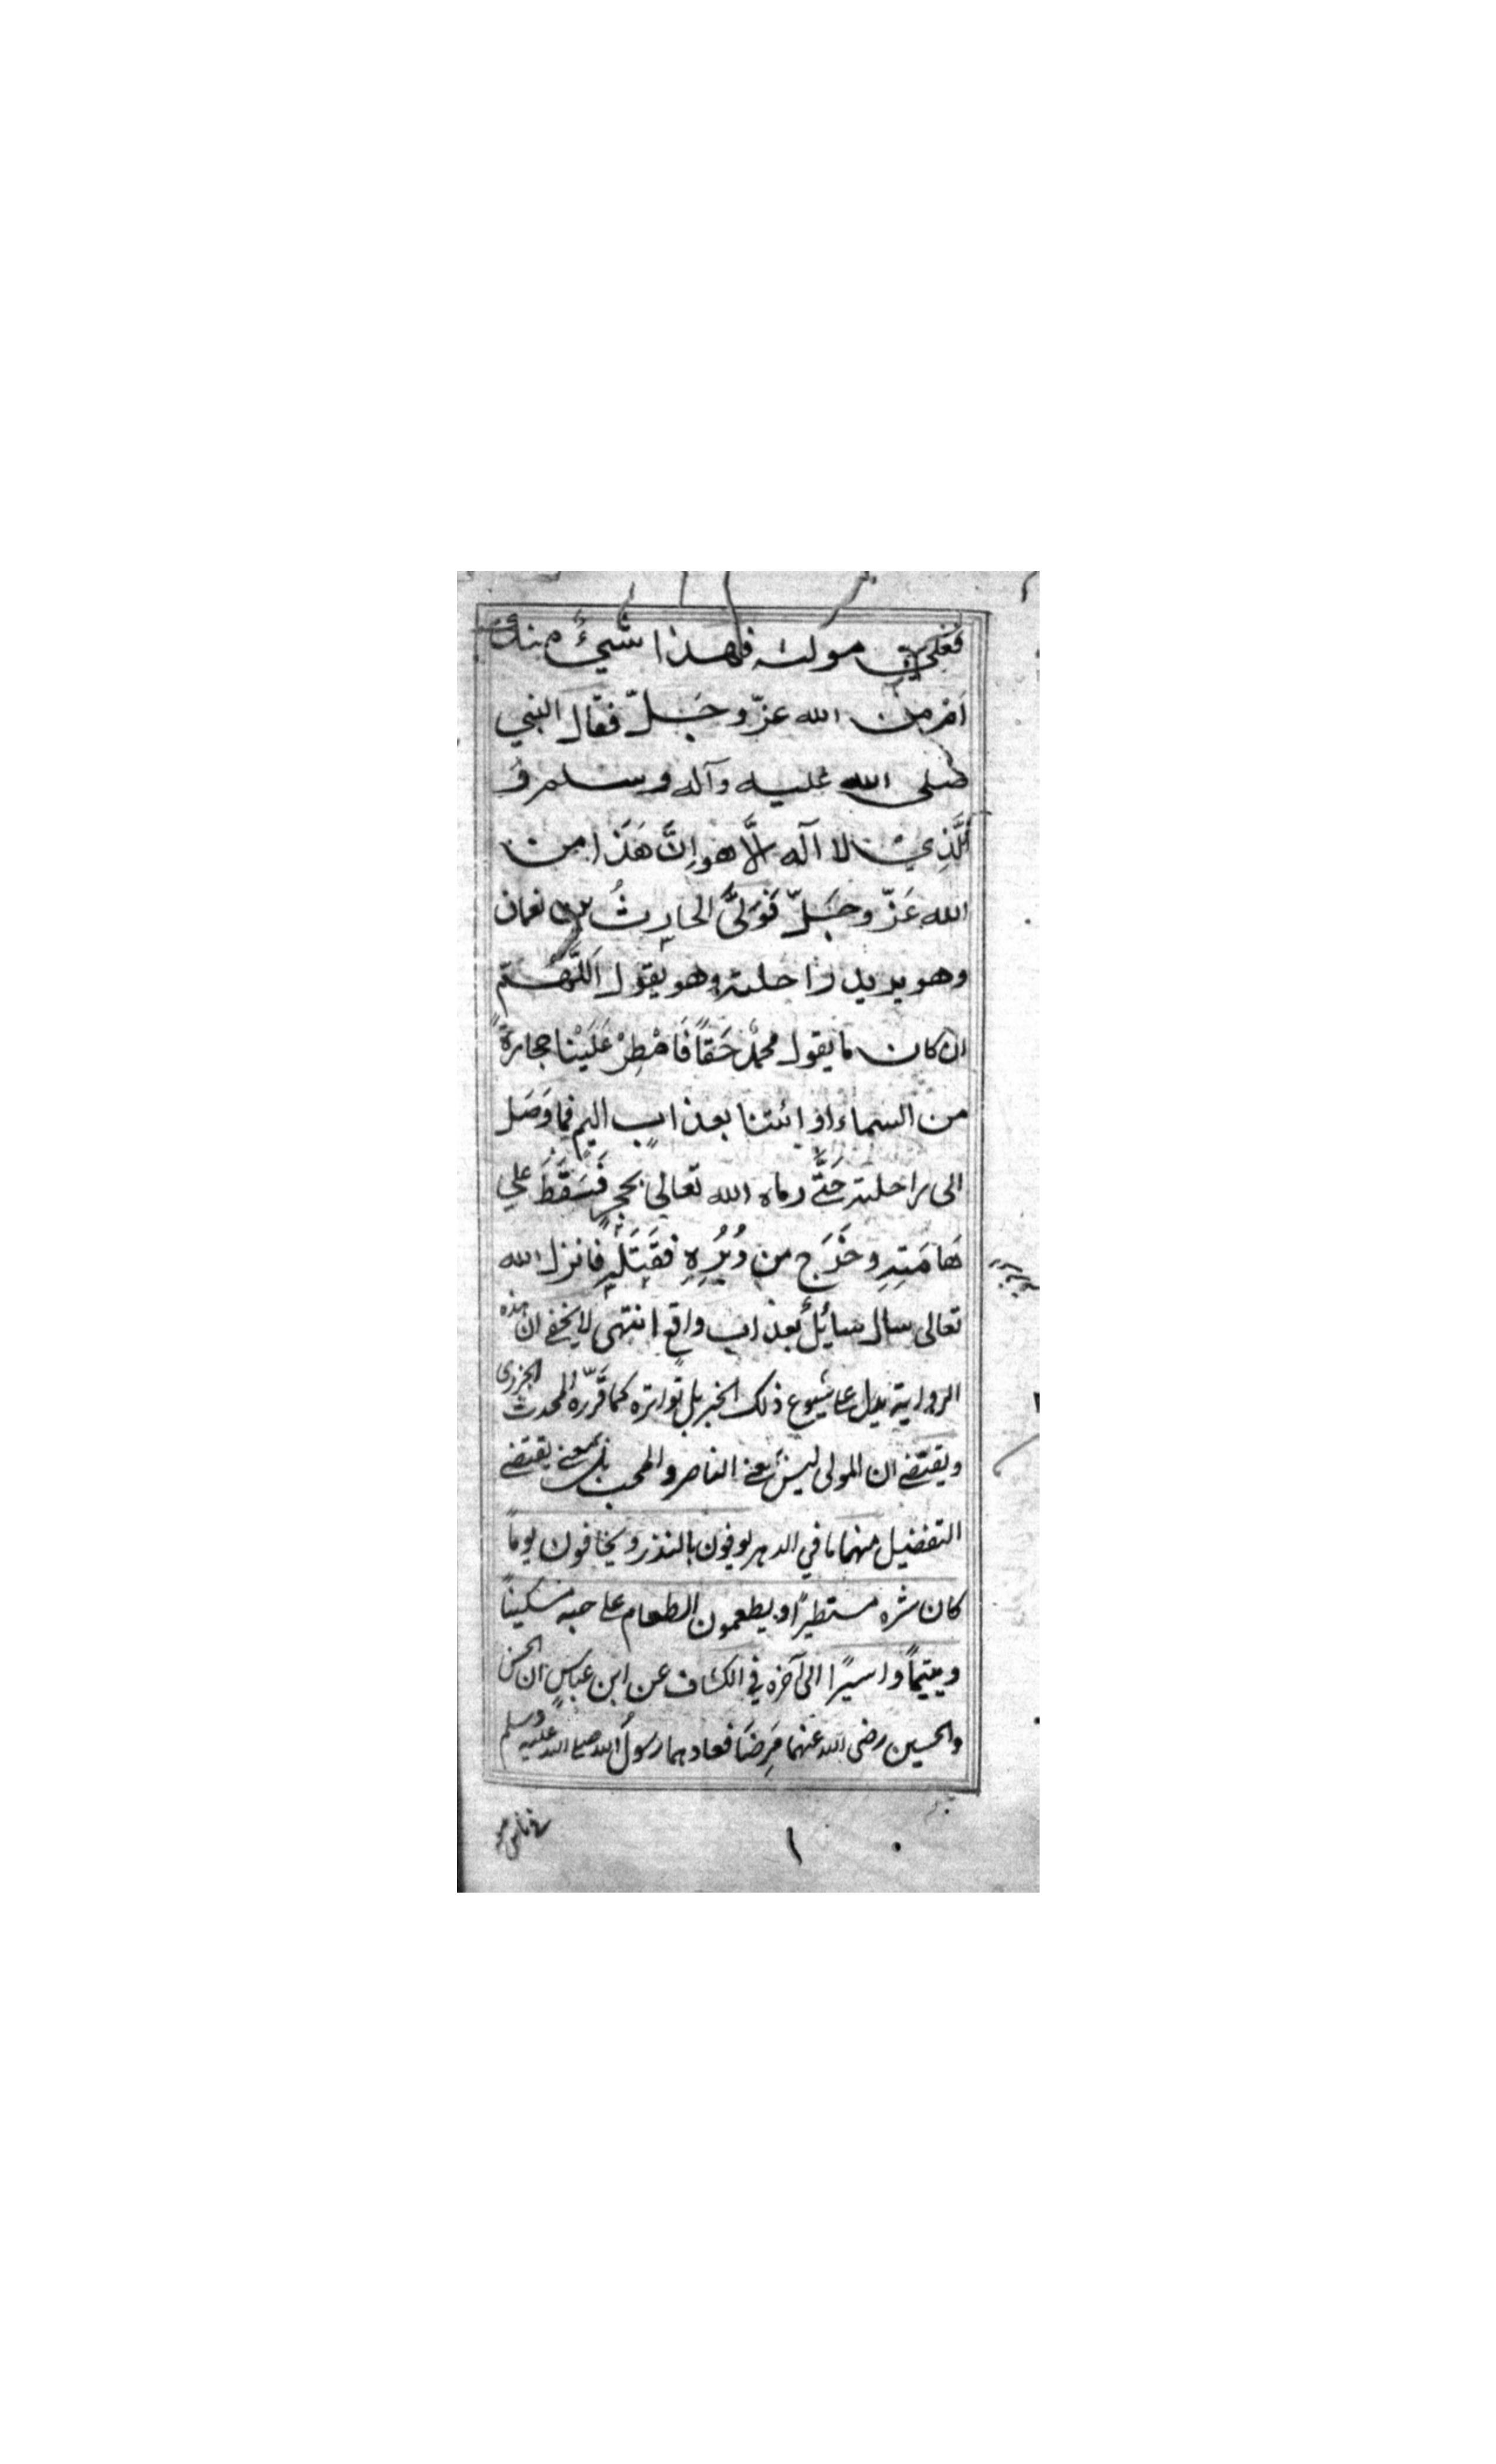 فَعَلِيّ مولاه فهذا شَيْءٌ منك
اَمْ من الله عزّ وجَلّ فقال النبي
صلى الله عليه وآله وسلم وَ
الَّذِيْ لا اله اِلَّا هو اِنَّ هَذا من
الله عَزّ وجَلّ فَوَلَّى الحارِثُ بن نعمان
وهو يريد راحلته وهو يقول اَللّٰهُمَّ
ان كان ما يقول محمّدٌ حَقاً فَاَمْطِرْ عَلَيْنا حجارةً
من السماء او ائتنا بعذابٍ اليم فما وَصَل
الى راحلته حَتَّى رماه الله تعالى بحجرٍ فَسَقَطَ على
هَامَتِهِ وخَرَج من دُبُرِهِ فقَتَلَه فانزل الله
تعالى سال سائلٌ بعذاب واقع انتهى لا يخفى ان هذه
الرواية يدل على شيوع ذلك الخبر بل تواتره كما قرّره المحدث الجزرى
ويقتضى ان المولى ليس بمعنى الناصر والمحب بل بمعنى يقتضى
التفضيل منهما ما في الدهر يوفون بالنذر ويخافون يوماً
كان شره مستطيراً ويطعمون الطعام على حبه مسكيناً
ويتيماً واسيراً الى آخره في الكشاف عن ابن عباسٍ ان الحسن
والحسين رضى الله عنهما مَرِضَا فعادهما رسولُ الله صلى الله عليه وسلم
في ناس
١